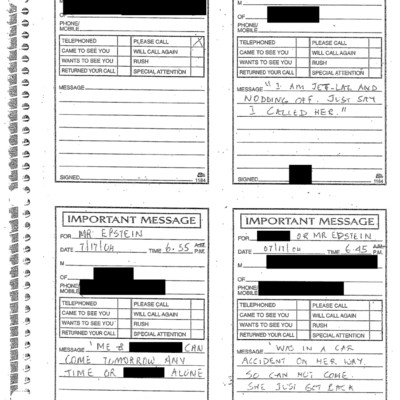 OF
PHONE/
MOBILE
TELEPHONED PLEASE CALL X
CAME TO SEE YOU WILL CALL AGAIN
WANTS TO SEE YOU RUSH
RETURNED YOUR CALL SPECIAL ATTENTION
MESSAGE
SIGNED 1184
M
OF
PHONE/
MOBILE
TELEPHONED PLEASE CALL
CAME TO SEE YOU WILL CALL AGAIN
WANTS TO SEE YOU RUSH
RETURNED YOUR CALL SPECIAL ATTENTION
MESSAGE "I AM JET-LAG AND
NODDING OFF. JUST SAY
I CALLED HER."
SIGNED 1184
IMPORTANT MESSAGE
FOR MR EPSTEIN
DATE 7/17/04 TIME 6.55 A.M. P.M.
M
OF
PHONE/
MOBILE
TELEPHONED PLEASE CALL
CAME TO SEE YOU WILL CALL AGAIN
WANTS TO SEE YOU RUSH
RETURNED YOUR CALL SPECIAL ATTENTION
MESSAGE "ME & CAN
COME TOMORROW ANY
TIME OR ALONE
IMPORTANT MESSAGE
FOR OR MR EPSTEIN
DATE 07/17/04 TIME 6.45 A.M. P.M.
M
OF
PHONE/
MOBILE
TELEPHONED PLEASE CALL
CAME TO SEE YOU WILL CALL AGAIN
WANTS TO SEE YOU RUSH
RETURNED YOUR CALL SPECIAL ATTENTION
MESSAGE "WAS IN A CAR
ACCIDENT ON HER WAY.
SO CAN NOT COME.
SHE JUST GOT BACK